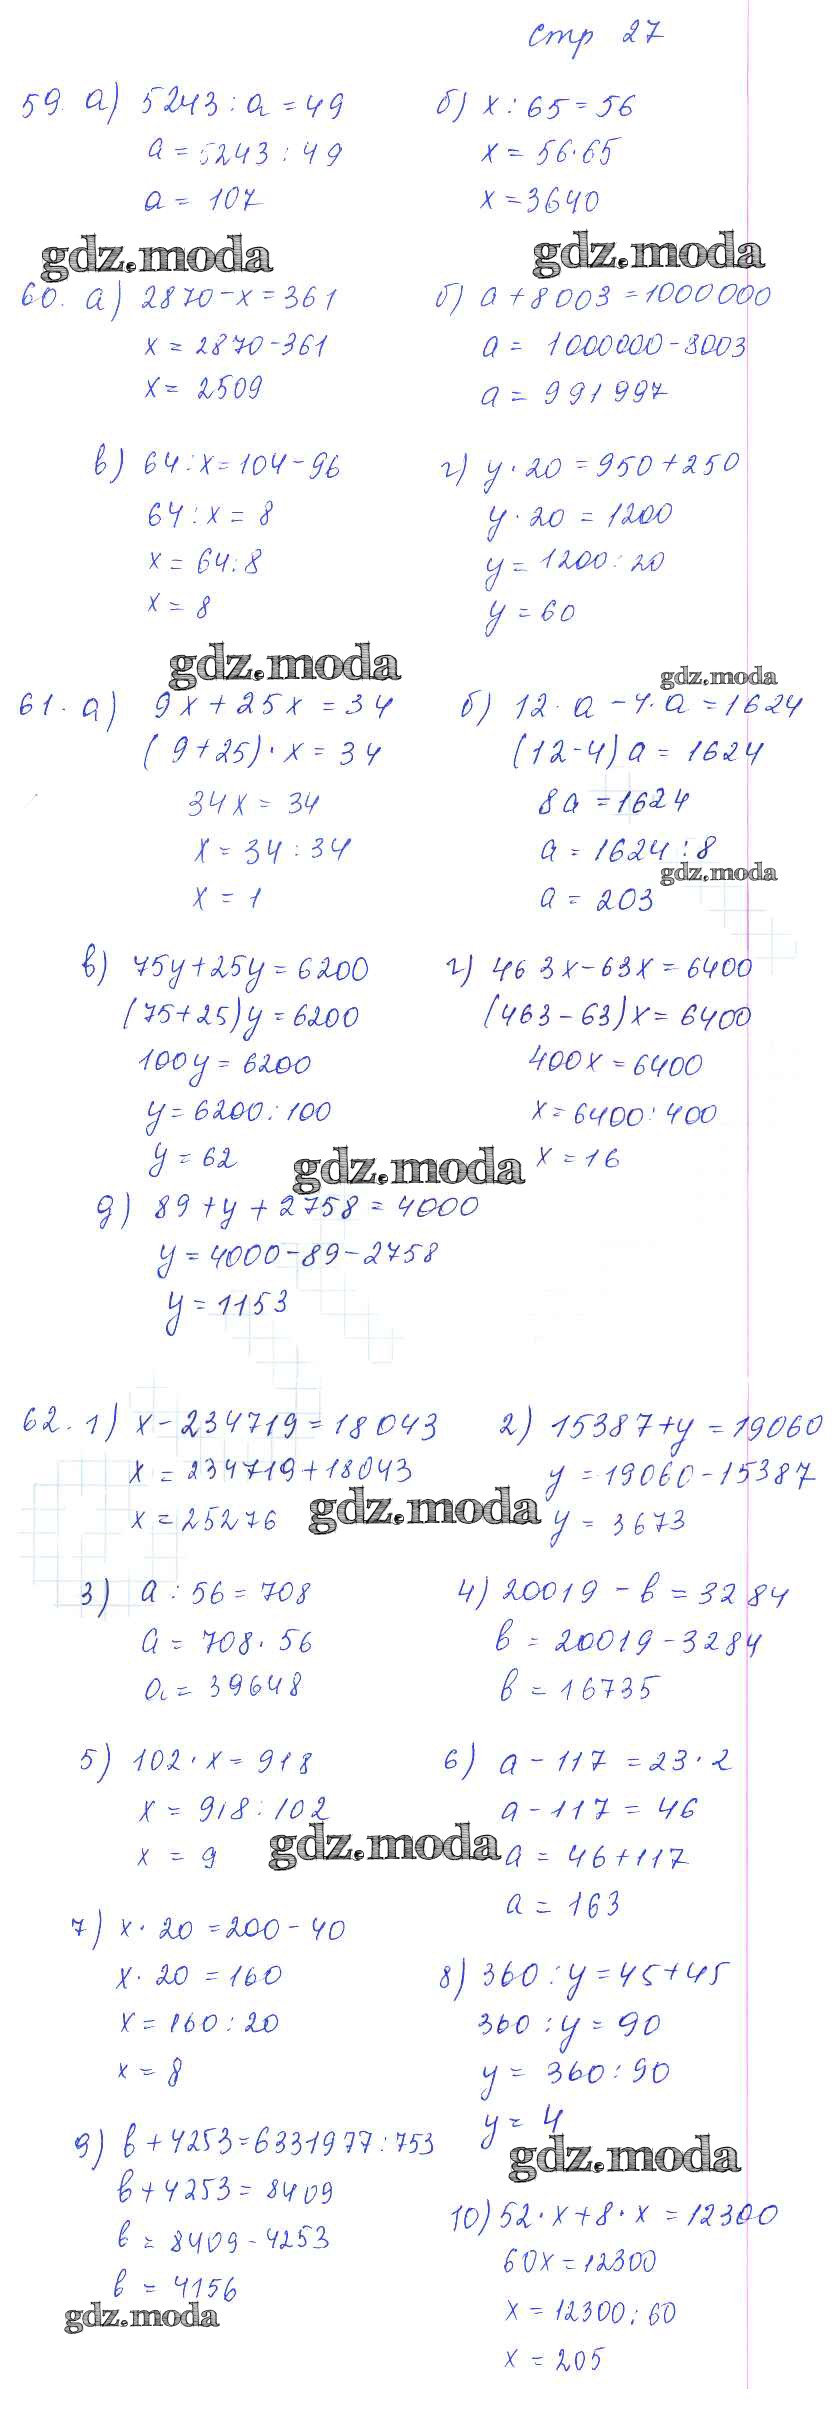 стр 27
59. а) 5243 : а = 49
а = 5243 : 49
а = 107
б) х : 65 = 56
х = 56·65
х = 3640
gdz.moda
gdz.moda
60. а) 2870 - х = 361
х = 2870 - 361
х = 2509
б) а + 8003 = 1000000
а = 1000000 - 8003
а = 991997
в) 64 : х = 104 - 96
64 : х = 8
х = 64 : 8
х = 8
г) у · 20 = 950 + 250
у · 20 = 1200
у = 1200 : 20
у = 60
gdz.moda
gdz.moda
61. а) 9х + 25х = 34
(9+25) · х = 34
34х = 34
х = 34 : 34
х = 1
б) 12 · а - 4 · а = 1624
(12-4) а = 1624
8а = 1624
а = 1624 : 8
gdz.moda
а = 203
в) 75у + 25у = 6200
(75+25) у = 6200
100у = 6200
у = 6200 : 100
у = 62
г) 463х - 63х = 6400
(463 - 63) х = 6400
400х = 6400
х = 6400 : 400
х = 16
gdz.moda
д) 89 + у + 2758 = 4000
у = 4000 - 89 - 2758
у = 1153
62. 1) х - 234719 = 18043
х = 234719 + 18043
х = 25276
2) 15387 + у = 19060
у = 19060 - 15387
у = 3673
gdz.moda
3) а : 56 = 708
а = 708 · 56
а = 39648
4) 20019 - в = 3284
в = 20019 - 3284
в = 16735
5) 102 · х = 918
х = 918 : 102
х = 9
6) а - 117 = 23 · 2
а - 117 = 46
а = 46 + 117
а = 163
gdz.moda
7) х · 20 = 200 - 40
х · 20 = 160
х = 160 : 20
х = 8
8) 360 : у = 45 + 45
360 : у = 90
у = 360 : 90
у = 4
gdz.moda
9) в + 4253 = 6331977 : 753
в + 4253 = 8409
в = 8409 - 4253
в = 4156
gdz.moda
10) 52 · х + 8 · х = 12300
60х = 12300
х = 12300 : 60
х = 205